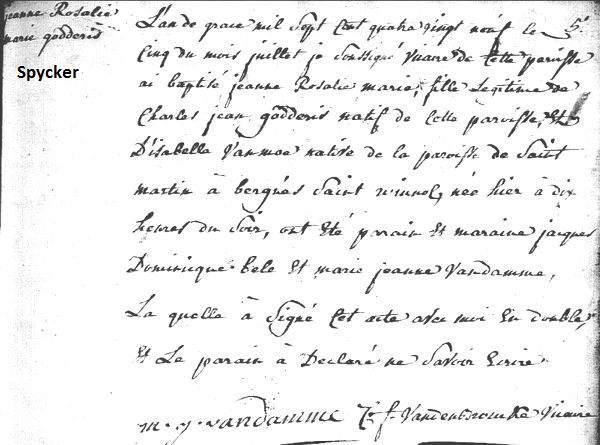 jeanne Rosalie
marie godderis
Spycker
L'an de grace mil Sept Cent quatre vingt neuf le 5e
Cinq du mois juillet je Soussigné vicaire de Cette paroisse
ai baptisé jeanne Rosalie marie, fille Legitime de
Charles jean godderis natif de Cette paroisse, Et
D'isabelle Vanmoe native de la paroisse de Saint
martin à bergues Saint winnoc, née hier à dix
heures du Soir, ont Eté parain Et maraine jacques
Dominique bele Et marie jeanne Vandamme,
La quelle à Signé Cet acte avec moi En double,
Et Le parain à Declaré ne Savoir Ecrire
m. j. vandamme f. Vandenbroucke Vicaire